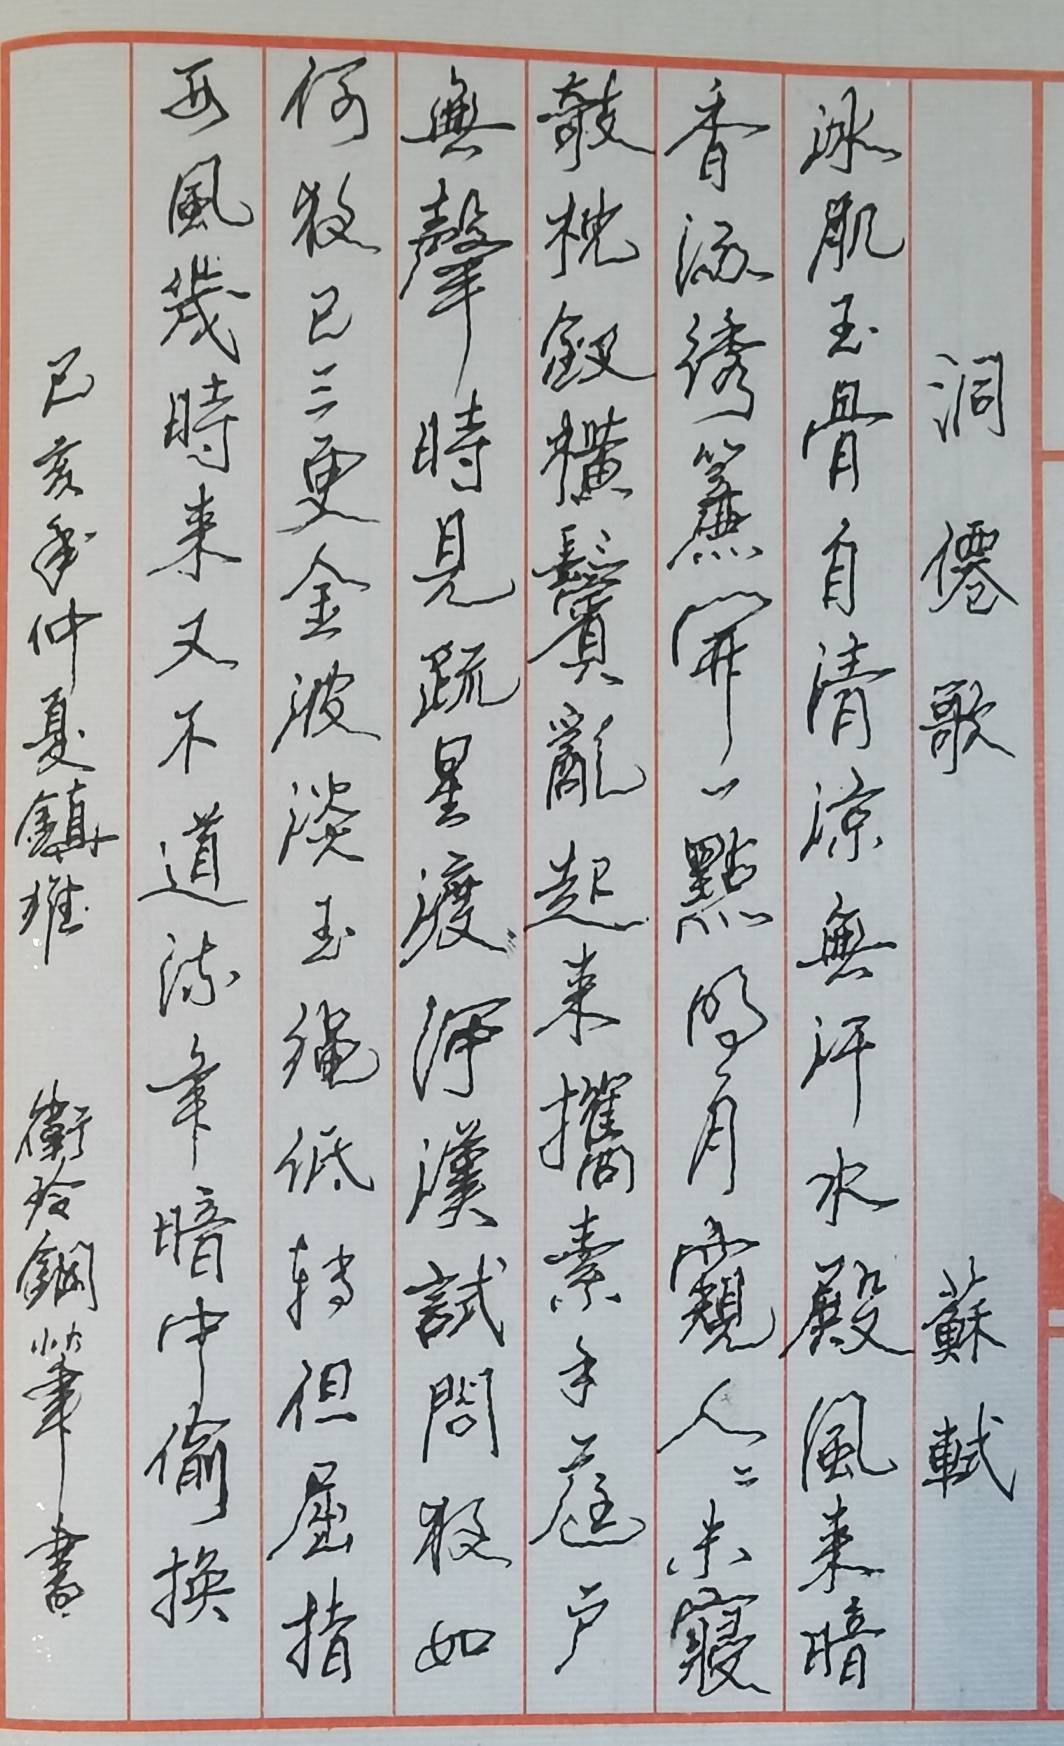 洞僊歌 蘇軾
冰肌玉骨自清涼無汗水殿風来暗
香滿綉簾開一點明月窺人〻未寢
攲枕釵橫鬢亂起来攜素手庭戶
無聲時見疏星渡河漢試問夜如
何夜已三更金波淡玉繩低轉但屈指
西風幾時来又不道流年暗中偷換
己亥年仲夏鎮雄 衛玲鋼筆書